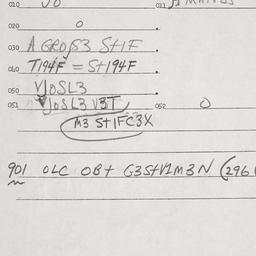 020 O
030 A GROSS3 StIF
040 T194F = St194F
050 VJOSL3
051 VJOSL3 V3T 052 O
M3 StIFC3X
901 OLC OBt G3StV1M3N (296